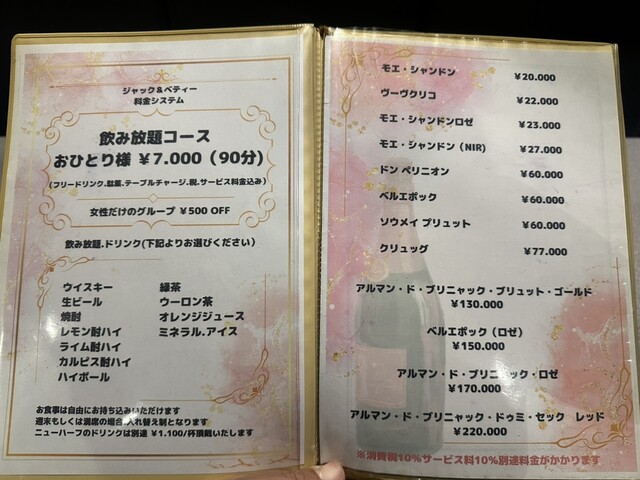 ジャック&ベティー
料金システム
飲み放題コース
おひとり様 ¥7.000(90分)
(フリードリンク.駄菓.テーブルチャージ.税.サービス料金込み)
女性だけのグループ ¥500 OFF
飲み放題.ドリンク(下記よりお選びください)
ウイスキー
生ビール
焼酎
レモン酎ハイ
ライム酎ハイ
カルピス酎ハイ
ハイボール
緑茶
ウーロン茶
オレンジジュース
ミネラル.アイス
お食事は自由にお持ち込みいただけます
週末もしくは満席の場合入れ替え制となります
ニューハーフのドリンクは別途 ¥1.100/杯頂戴いたします
モエ・シャンドン ¥20.000
ヴーヴクリコ ¥22.000
モエ・シャンドンロゼ ¥23.000
モエ・シャンドン(NIR) ¥27.000
ドン ペリニオン ¥60.000
ベルエポック ¥60.000
ソウメイ ブリュット ¥60.000
クリュッグ ¥77.000
アルマン・ド・ブリニャック・ブリュット・ゴールド
¥130.000
ベルエポック(ロゼ)
¥150.000
アルマン・ド・ブリニャック・ロゼ
¥170.000
アルマン・ド・ブリニャック・ドゥミ・セック レッド
¥220.000
※消費税10%サービス料10%別途料金がかかります